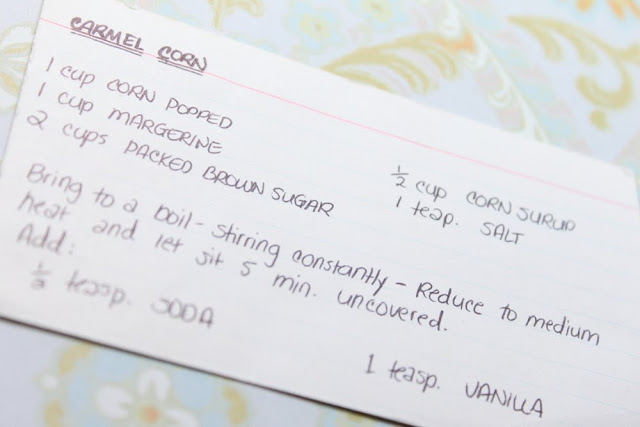 CARMEL CORN
1 cup CORN POPPED
1 cup MARGERINE
2 cups PACKED BROWN SUGAR
1/2 cup CORN SURUP
1 teap. SALT
Bring to a boil - stirring constantly - Reduce to medium
heat and let sit 5 min. uncovered.
Add:
1/2 teasp. SODA
1 teasp. VANILLA